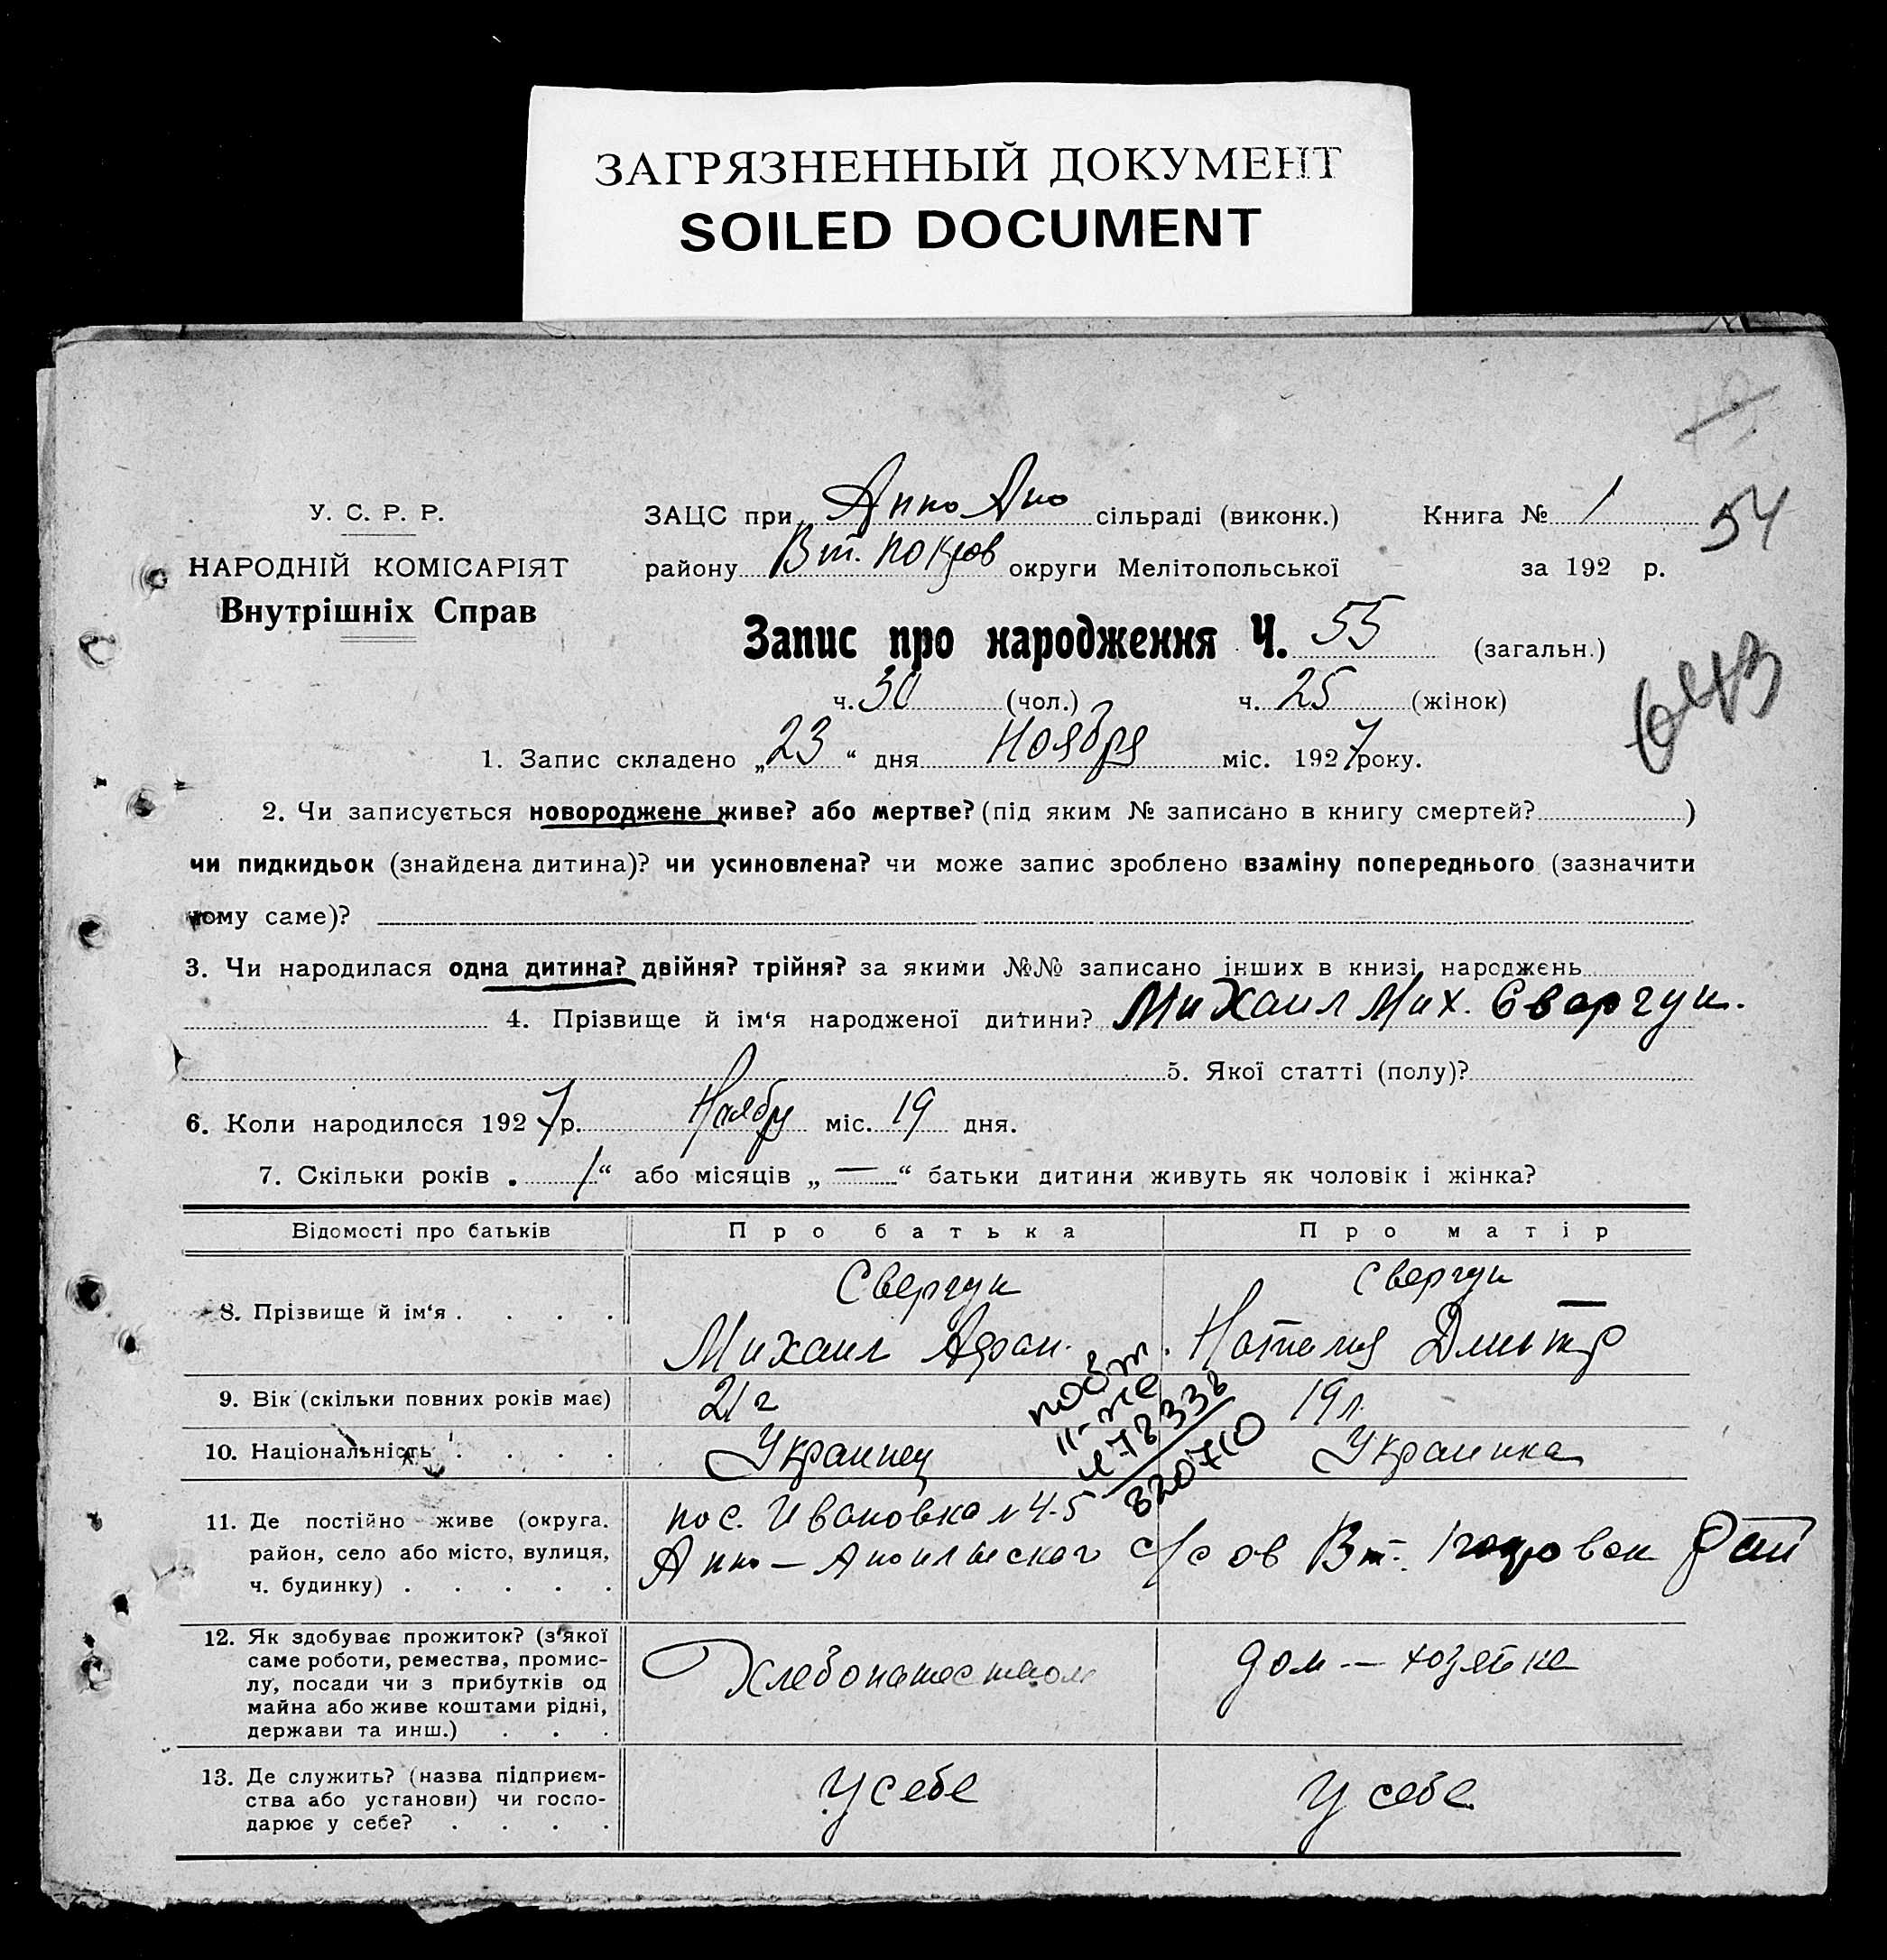 ЗАГРЯЗНЕННЫЙ ДОКУМЕНТ
SOILED DOCUMENT
54
У. С. Р. Р.
НАРОДНІЙ КОМІСАРІЯТ
Внутрішніх Справ
ЗАЦС при Анно Апо сільраді (виконк.) Книга № 1
району Вт. Покров округи Мелітопольської за 192 р.
Запис про народження Ч. 55 (загальн.)
643
ч. 30 (чол.) ч. 25 (жінок)
1. Запис складено „23“ дня Ноября міс. 1927 року.
2. Чи записується новороджене живе? або мертве? (під яким № записано в книгу смертей? )
чи пидкидьок (знайдена дитина)? чи усиновлена? чи може запис зроблено взаміну попереднього (зазначити
чому саме)?
3. Чи народилася одна дитина? двійня? трійня? за якими №№ записано інших в книзі народжень
4. Прізвище й ім‘я народженої дитини? Михаил Мих. Свергун.
5. Якої статті (полу)?
6. Коли народилося 1927 р. Ноябр міс. 19 дня.
7. Скільки років „1“ або місяців „—“ батьки дитини живуть як чоловік і жінка?
Відомості про батьків Про батька Про матір
8. Прізвище й ім‘я . . . . Свергун Свергун
Михаил Афан. Наталия Дмитр
9. Вік (скільки повних років має) 21 г 19 л.
10. Національність . . . . Украинец Украинка
11. Де постійно живе (округа.
район, село або місто, вулиця,
ч. будинку) . . . . .
пос. Ивановка № 4-5
Анно - с/сов Вт. рай
12. Як здобуває прожиток? (з‘якої
саме роботи, ремества, промис-
лу, посади чи з прибутків од
майна або живе коштами рідні,
держави та инш.) . . .
Хлебопашеством дом — хозяйка
13. Де служить? (назва підприєм-
ства або установи) чи госпо-
дарює у себе? . . . .
У себе У себе